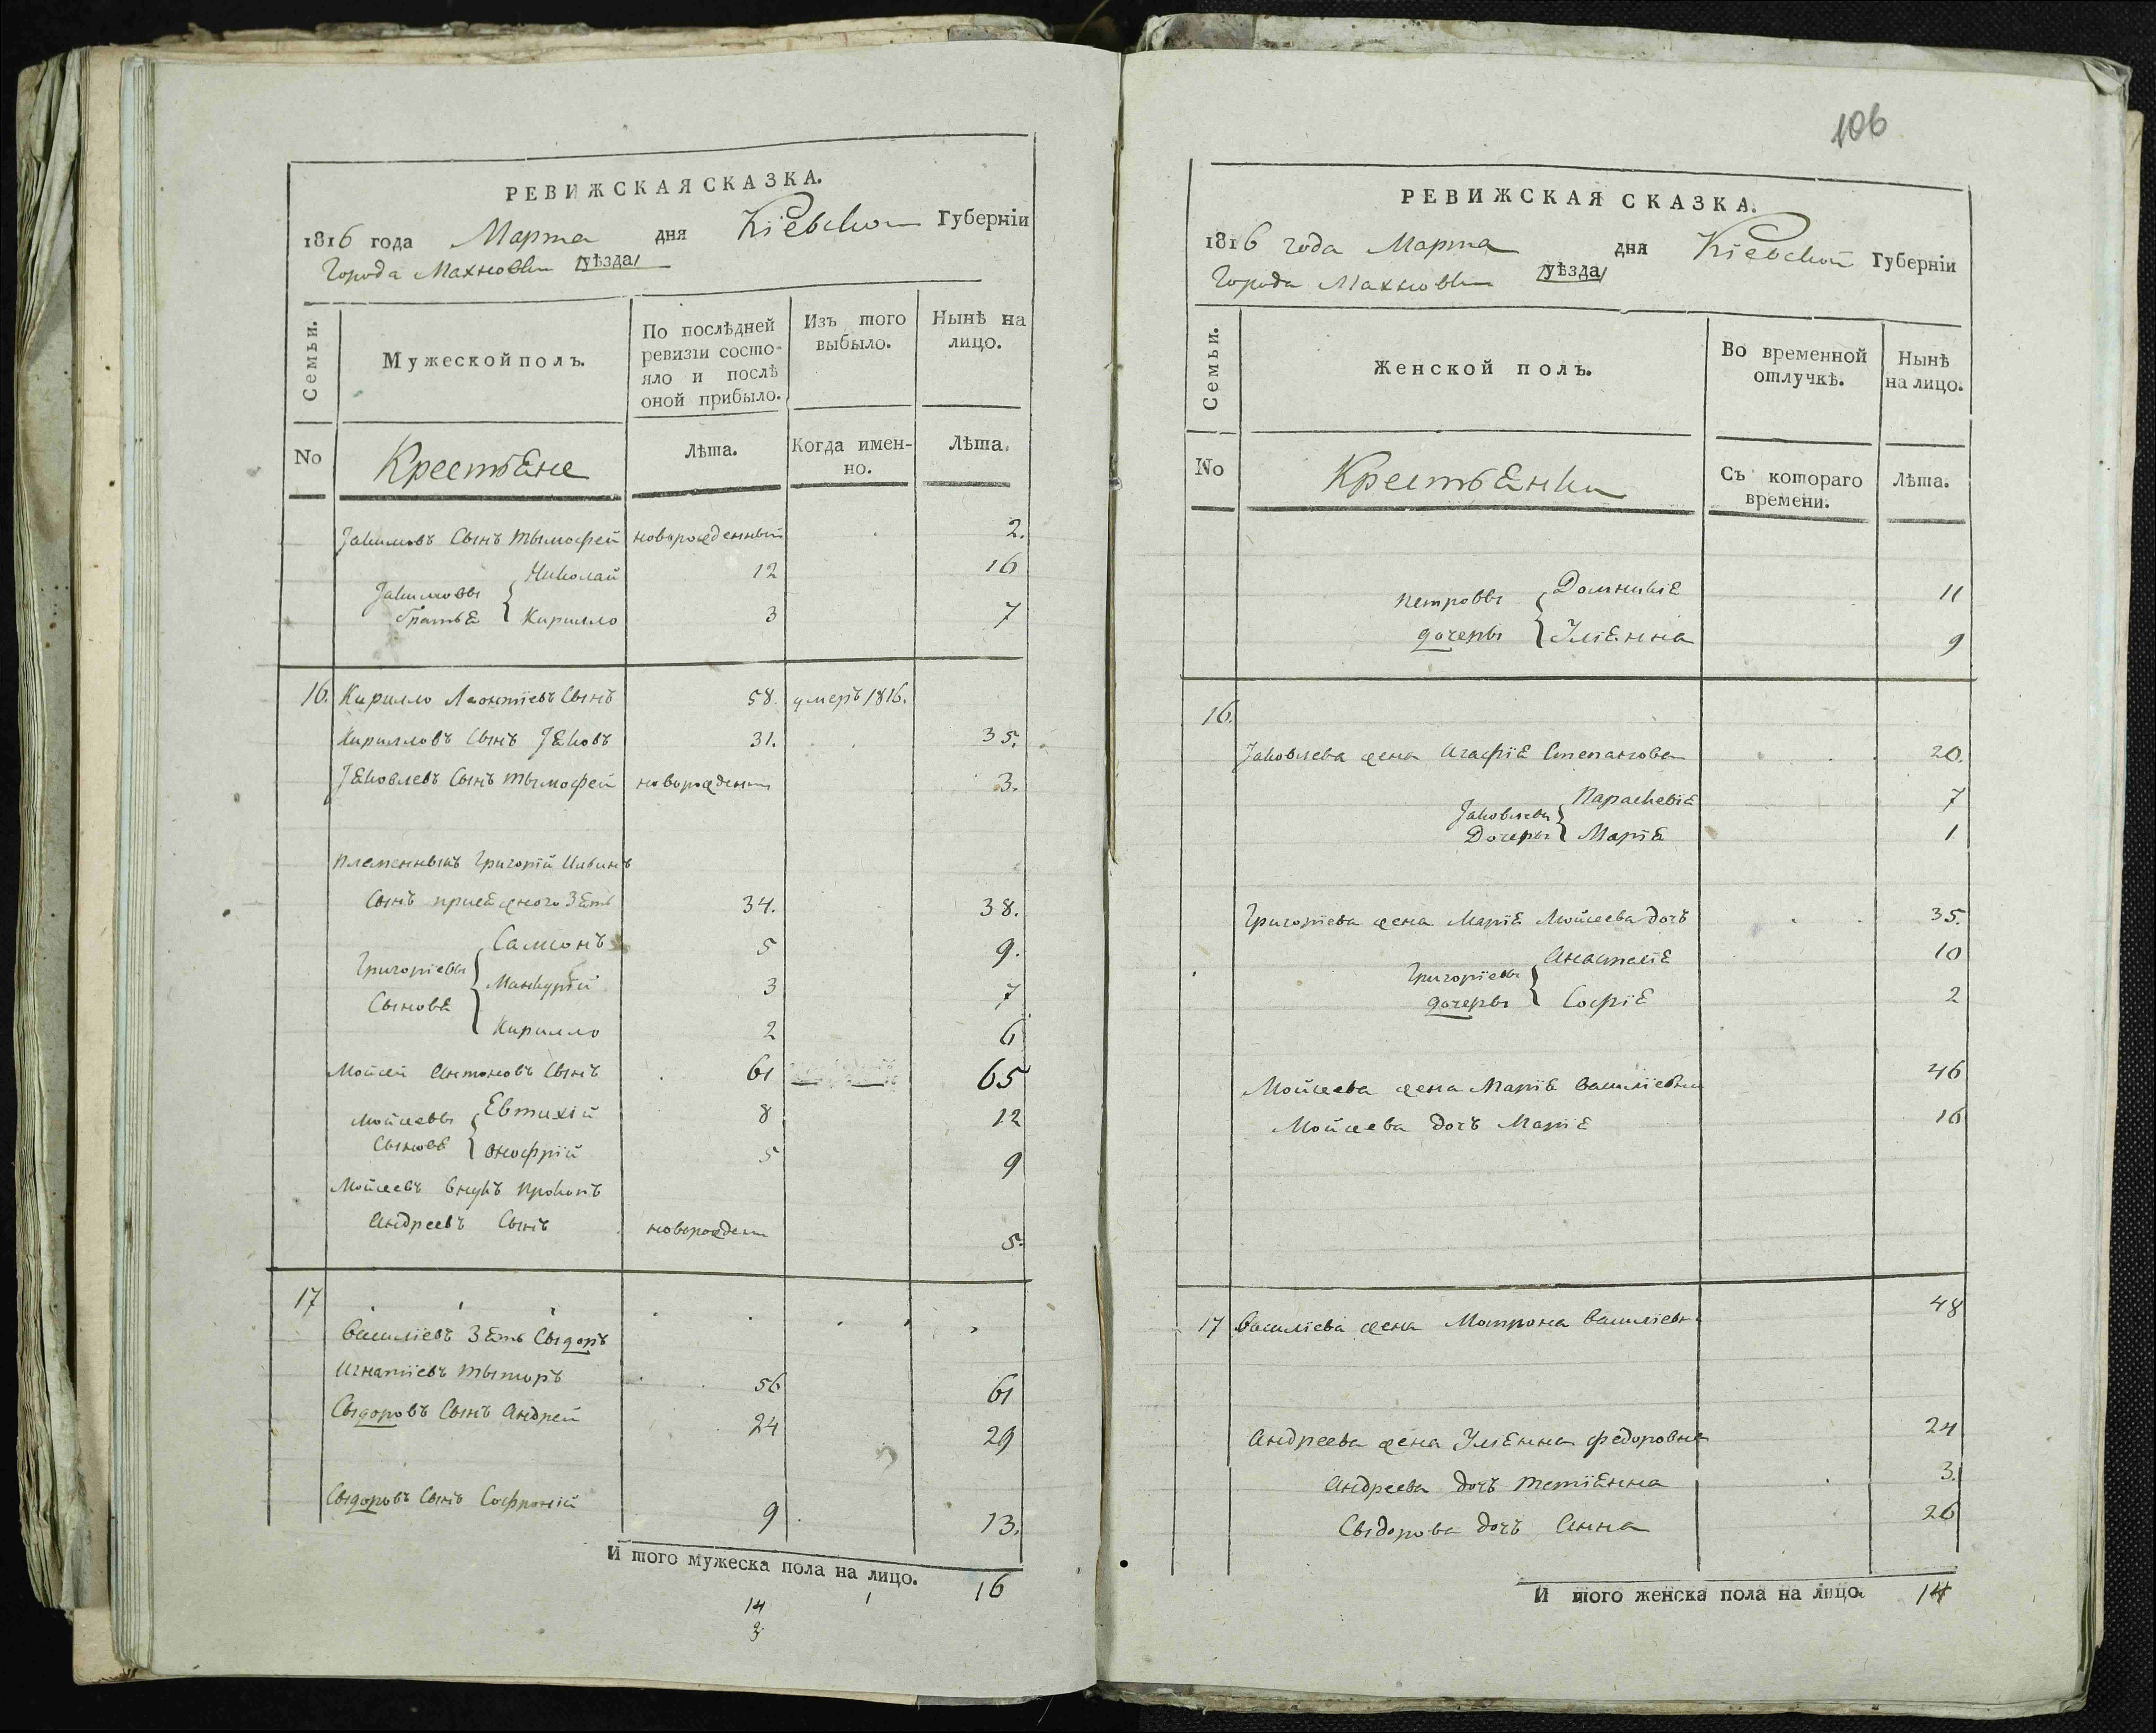 РЕВИЖСКАЯ СКАЗКА.
1816 года Марта дня Кіевской Губерніи
Города Махновки уѣзда
Семьи.
Мужеской полъ.
По послѣдней ревизіи состояло и послѣ оной прибыло.
Изъ того выбыло.
Нынѣ на лицо.
No
Крестьяне
Лѣта.
Когда именно.
Лѣта.
Јакимовъ Сынъ Тымофей новорожденный 2.
Николай 12 16
Јакимовы братья
Кирилло 3 7
16. Кирилло Леонтіевъ Сынъ 58. умеръ 1816.
Кирилловъ Сынъ Јяковъ 31. 35.
Јяковлевъ Сынъ Тымофей новорожденны 3.
племенныкъ Григорій Ильинъ
Сынъ 34. 38.
Самсонъ 5 9.
Григоріевы
Манкурій 3 7
Сыновя
Кирилло 2 6
Мойсей Антоновъ Сынъ 61 65
Мойсеевы Евтихій 8 12
Сыновя Онофрій 5 9
Мойсеевъ внукъ Прокопъ
Андреевъ Сынъ новорожден 5.
17
Василіевъ Зять Сыдоръ
Игнатіевъ 56 61
Сыдоровъ Сынъ Андрей 24 29
Сыдоровъ Сынъ Софроній 9 13.
И того мужеска пола на лицо. 16
14 1
3
106
РЕВИЖСКАЯ СКАЗКА.
1816 года Марта дня Кіевской Губерніи
Города Махновки уѣзда
Семьи.
Женской полъ.
Во временной отлучкѣ.
Нынѣ на лицо.
No
Крестьянки
Съ котораго времени.
Лѣта.
Петровы Домникія 11
дочеры Уліянна 9
16.
Јаковлева жена Агафія Степанова 20.
Параскевія 7
Јаковлевы
Дочеры Марія 1
Григоріева жена Марія Мойсеева дочъ 35.
Анастасія 10
Григоріевы
дочеры Софія 2
Мойсеева жена Марія Василіевна 46
Мойсеева дочъ Марія 16
17 Василіева жена Матрона Василіевна 48
Андреева жена Уліянна Федоровна 24
Андреева дочъ Тетіянна 3.
Сыдорова дочъ Анна 26
И того женска пола на лицо. 14